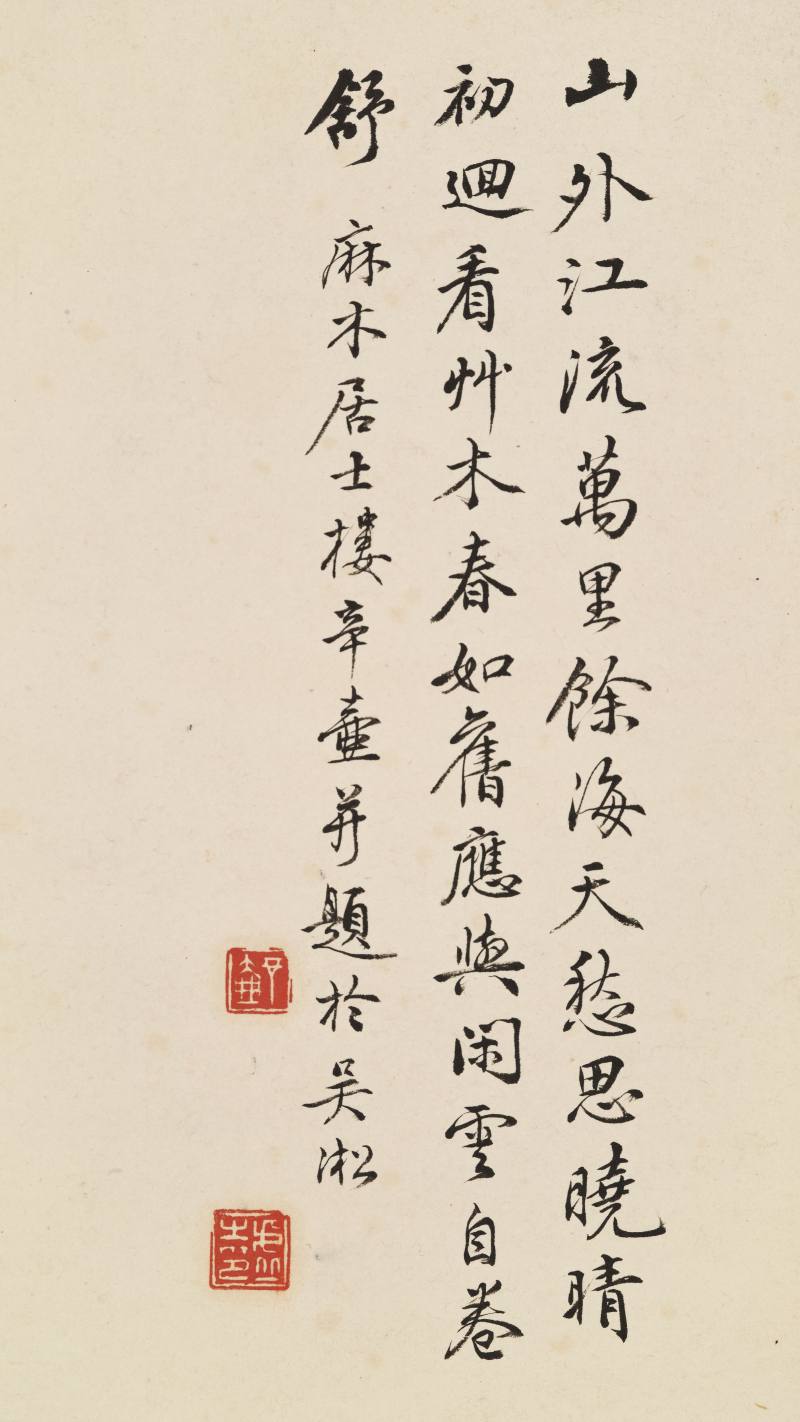 山外江流萬里餘海天愁思曉晴
初迴看艸木春如舊應與閑雲自卷
舒 麻木居士樓辛壺并題於吴淞